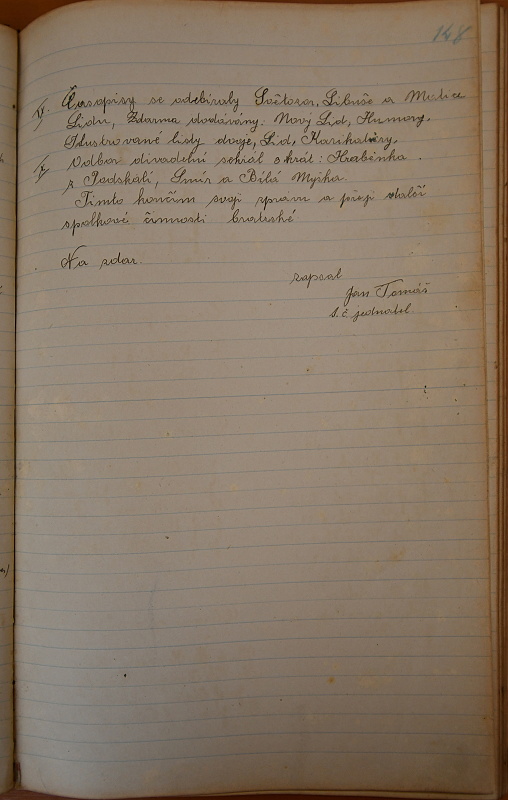 148
IV. Časopisy se odebíraly Světozor, Libuše a Matice
Lidu, Zdarma dodávány: Nový Lid, Humory,
Ilustrované listy dvoje, Lid, Karikatury,
V. Odbor divadelní sehrál : Hraběnka
z Podskalí, Smír a Bílá Myška.
Tímto končím svoji zprávu a přeji další
spolkové činnosti bratrské
Na zdar.
zapsal
Jan Tomáš
t. č. jednatel.